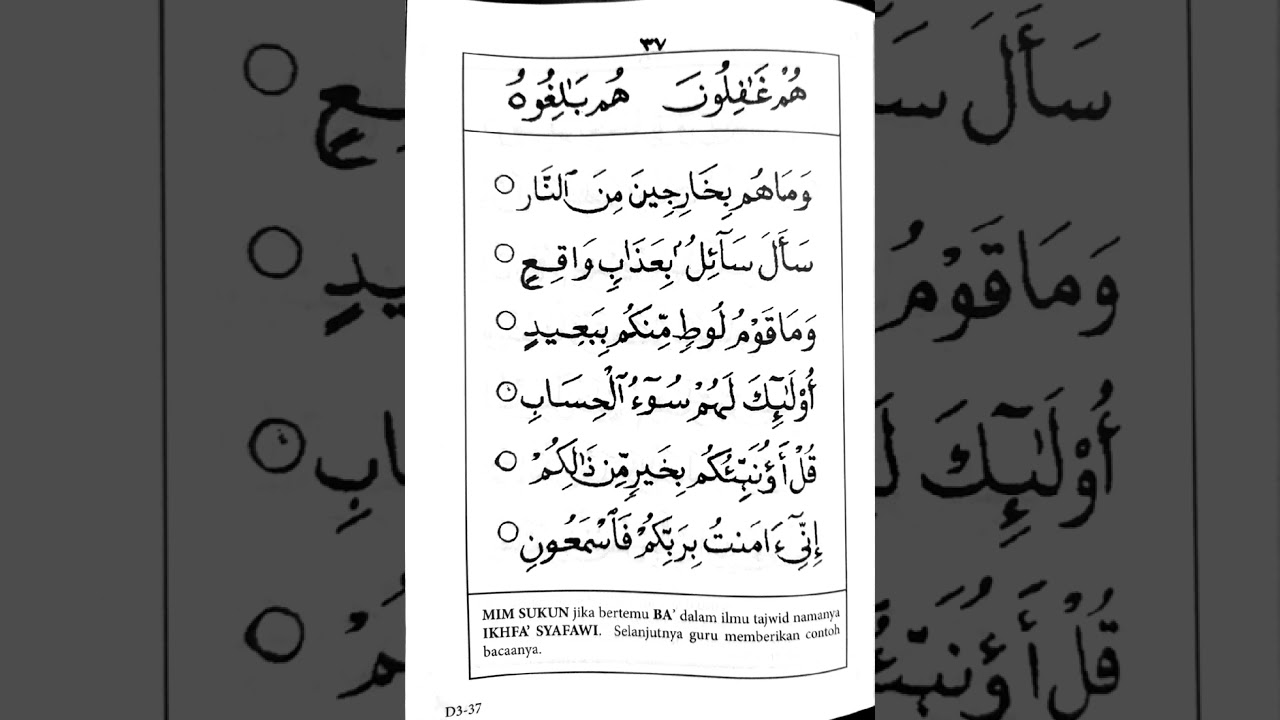 ٣٧
هُمْ غَٰفِلُونَ هُم بَٰلِغُوهُ
وَمَاهُم بِخَارِجِينَ مِنَ ٱلنَّارِ ○
سَأَلَ سَآئِلُۢ بِعَذَابٍ وَاقِعٍ ○
وَمَا قَوْمُ لُوطٍ مِّنكُم بِبَعِيدٍ ○
أُوْلَٰٓئِكَ لَهُمْ سُوٓءُ ٱلْحِسَابِ ○
قُلْ أَؤُنَبِّئُكُم بِخَيْرٍ مِّن ذَٰلِكُمْ ○
إِنِّىٓ ءَامَنتُ بِرَبِّكُمْ فَٱسْمَعُونِ ○
MIM SUKUN jika bertemu BA’ dalam ilmu tajwid namanya
IKHFA’ SYAFAWI. Selanjutnya guru memberikan contoh
bacaanya.
D3-37